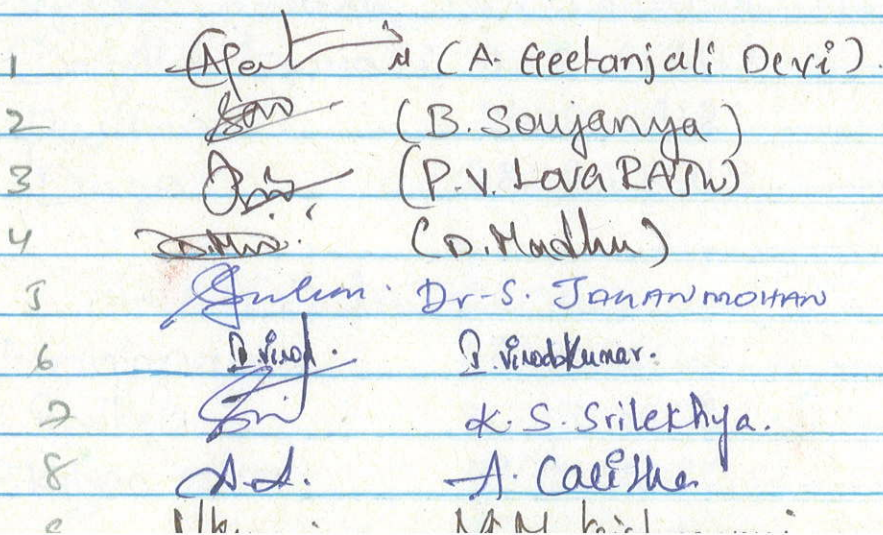 1 (A. Geetanjali Devi)
2 (B. Soujanya)
3 (P.V. Lova RAJU)
4 (D. Madhu)
5 Dr-S. JAGANMOHAN
6 D. Vinod. D. VinodKumar.
7 K. S. Srilekhya.
8 A. Lalitha